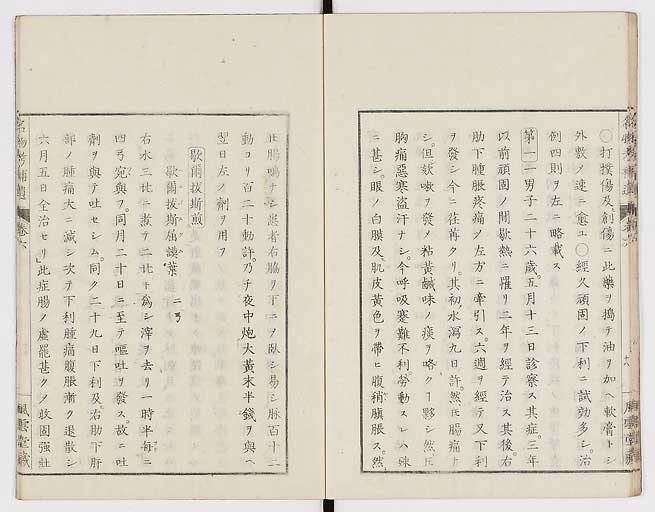 〇打撲傷及創傷ニ此藥ヲ搗テ油ヲ加ヘ軟膏トシ
外敷ノ速ニ愈ユ〇經久頑固ノ下利ニ試効多シ治
例四則ヲ左ニ略載ス
第一一男子二十六歳。五月十三日診察ス其症三年
以前頑固ノ間歇熱ニ罹リ二年ヲ經テ治ス其後右
肋下腫脹疼痛ノ左方ニ牽引ス。六週ヲ經テ又下利
ヲ發シ今ニ荏苒タリ。其初水瀉九日許。然氏腸痛ト
シ。但妖嗽ヲ發ノ粘黃鹹味ノ痰ヲ咯ク一夥シ然氏
胸痛惡寒盜汗ナシ。今呼吸蹇難不利勞動スレハ殊
ニ甚シ。眼ノ白膜及肌皮黃色ヲ帶ヒ腹稍膹脹ス。然
氏腸鳴ナシ患者右脇ヲ下ニノ臥シ易シ脈百十二
動ヨリ百二十動許。乃チ夜中炮大黃末半錢ヲ與ヘ
翌日左ノ劑ヲ用フ
歇爾拔斯煎
歇爾拔斯屈謨葉 二弓
右水三廾ニ煮テ二廾ト爲シ滓ヲ去リ一時半每ニ
四弓宛與フ。同月二十日ニ至テ嘔吐ヲ發ス。故ニ吐
劑ヲ與テ吐セシム。同ク二十九日下利及右肋下肝
部ノ腫痛大ニ減シ次テ下利腫痛腹脹漸ク退散シ
六月五日全治セリ此症腸ノ虛罷甚ク乃收固强壯
名物考補遺 卷六
風雲堂藏